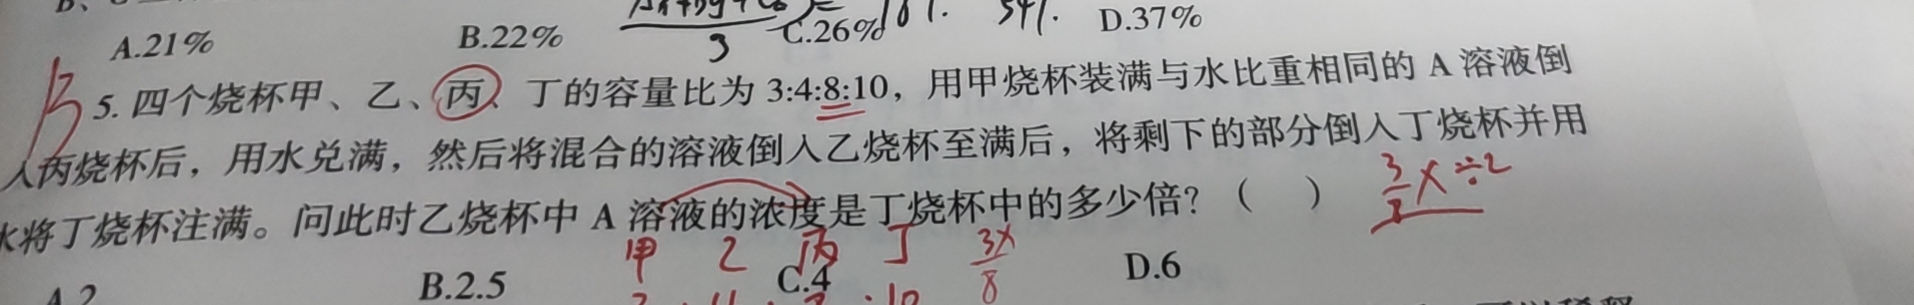 A.21% B.22% C.26% D.37%
5. 四个烧杯甲、乙、丙、丁的容量比为 3:4:8:10，用甲烧杯装满与水比重相同的 A 溶液倒
入丙烧杯后，用水兑满，然后将混合的溶液倒入乙烧杯至满后，将剩下的部分倒入丁烧杯并用
水将丁烧杯注满。问此时乙烧杯中 A 溶液的浓度是丁烧杯中的多少倍？（ ）
甲 乙 丙 丁 3x/8
A.2 B.2.5 C.4 D.6